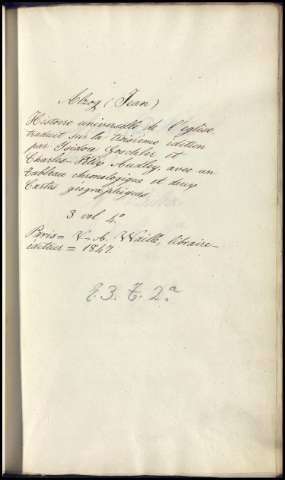 Alzog (Jean)
Histoire universelle de l'église
traduit sur la troisième édition
par Isidore Goschler et
Charles-Félix Audley, avec un
tableau chronologique et deux
Cartes géographiques.
3 vol 4.º
Paris = V-A. Waille, libraire-
éditeur = 1847.
E. 3. T. 2.ª